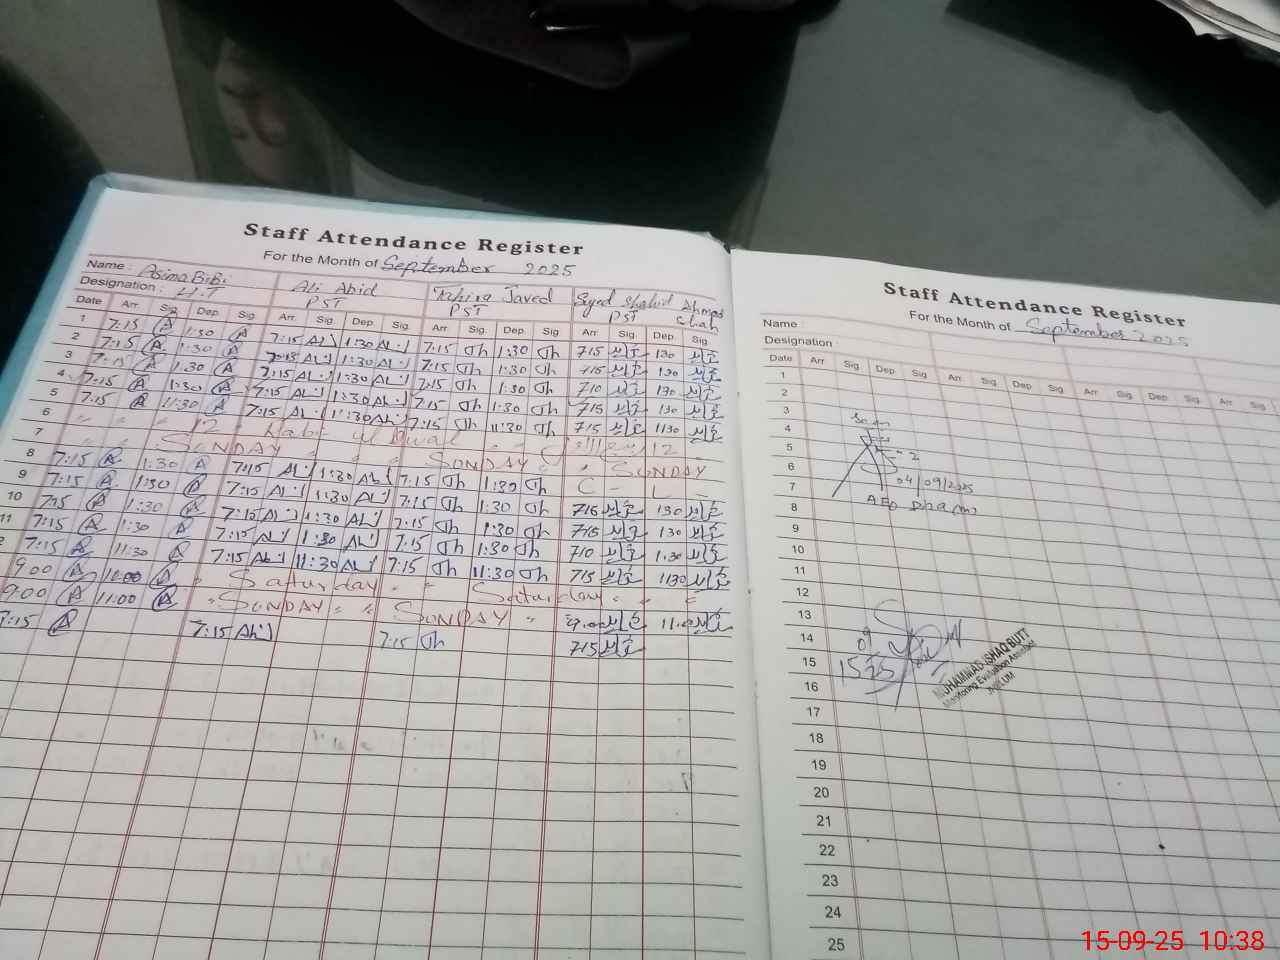 Staff Attendance Register
For the Month of September 2025
Name : Asima BiBi Ali Abid Tahira Javed Syed Shahid Ahmad Shah
Designation : H.T PST PST PST
Date Arr. Sig. Dep. Sig. Arr. Sig. Dep. Sig. Arr. Sig. Dep. Sig. Arr. Sig. Dep. Sig.
1 7:15 A 1:30 A 7:15 Ali 1:30 Ali 7:15 Th 1:30 Th 715 130
2 7:15 A 1:30 A 7:15 Ali 1:30 Ali 7:15 Th 1:30 Th 715 130
3 7:15 A 1:30 A 7:15 Ali 1:30 Ali 7:15 Th 1:30 Th 710 130
4 7:15 A 1:30 A 7:15 Ali 1:30 Ali 7:15 Th 1:30 Th 715 130
5 7:15 A 11:30 A 7:15 Ali 11:30 Ali 7:15 Th 11:30 Th 715 1130
6 12 Rabi- ul Awal 12
7 SUNDAY SUNDAY SUNDAY
8 7:15 A 1:30 A 7:15 Ali 1:30 Ali 7:15 Th 1:30 Th C - L -
9 7:15 A 1:30 A 7:15 Ali 1:30 Ali 7:15 Th 1:30 Th 715 130
10 7:15 A 1:30 A 7:15 Ali 1:30 Ali 7:15 Th 1:30 Th 715 130
11 7:15 A 1:30 A 7:15 Ali 1:30 Ali 7:15 Th 1:30 Th 710 1:30
7:15 A 11:30 A 7:15 Ali 11:30 Ali 7:15 Th 11:30 Th 715 1130
9:00 A 11:00 A Saturday Saturday
9:00 A 11:00 A SUNDAY SUNDAY 9:00 11:00
7:15 A 7:15 Ali 7:15 Th 715
Staff Attendance Register
For the Month of September 2025
Name :
Designation :
Date Arr. Sig. Dep. Sig. Arr. Sig. Dep. Sig. Arr. Sig. Dep. Sig. Arr.
1
2
3
4
5
6
7 04/09/2025
8 AEO
9
10
11
12
13
14 09
15 15
16
MUHAMMAD ISHAQ BUTT
Monitoring Evaluation Assistant
17
18
19
20
21
22
23
24
25
15-09-25 10:38